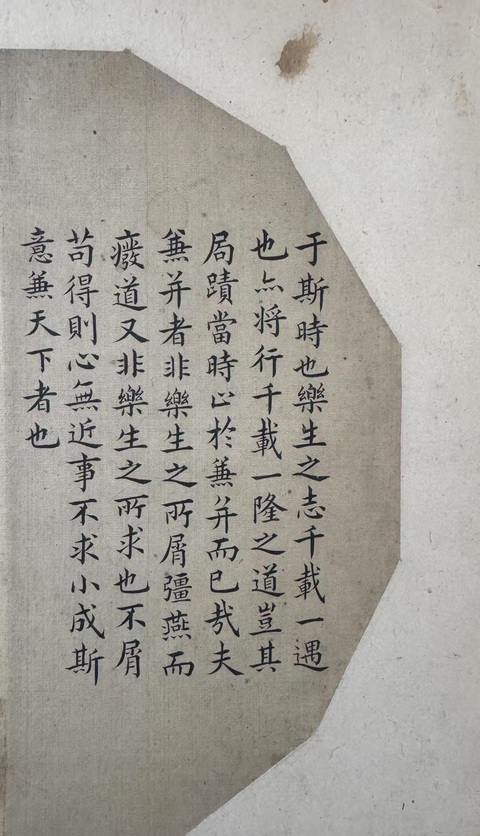 于斯時也樂生之志千載一遇
也亦将行千載一隆之道豈其
局蹟當時止於兼并而已㢤夫
兼并者非樂生之所屑彊燕而
癈道又非樂生之所求也不屑
苟得則心無近事不求小成斯
意兼天下者也